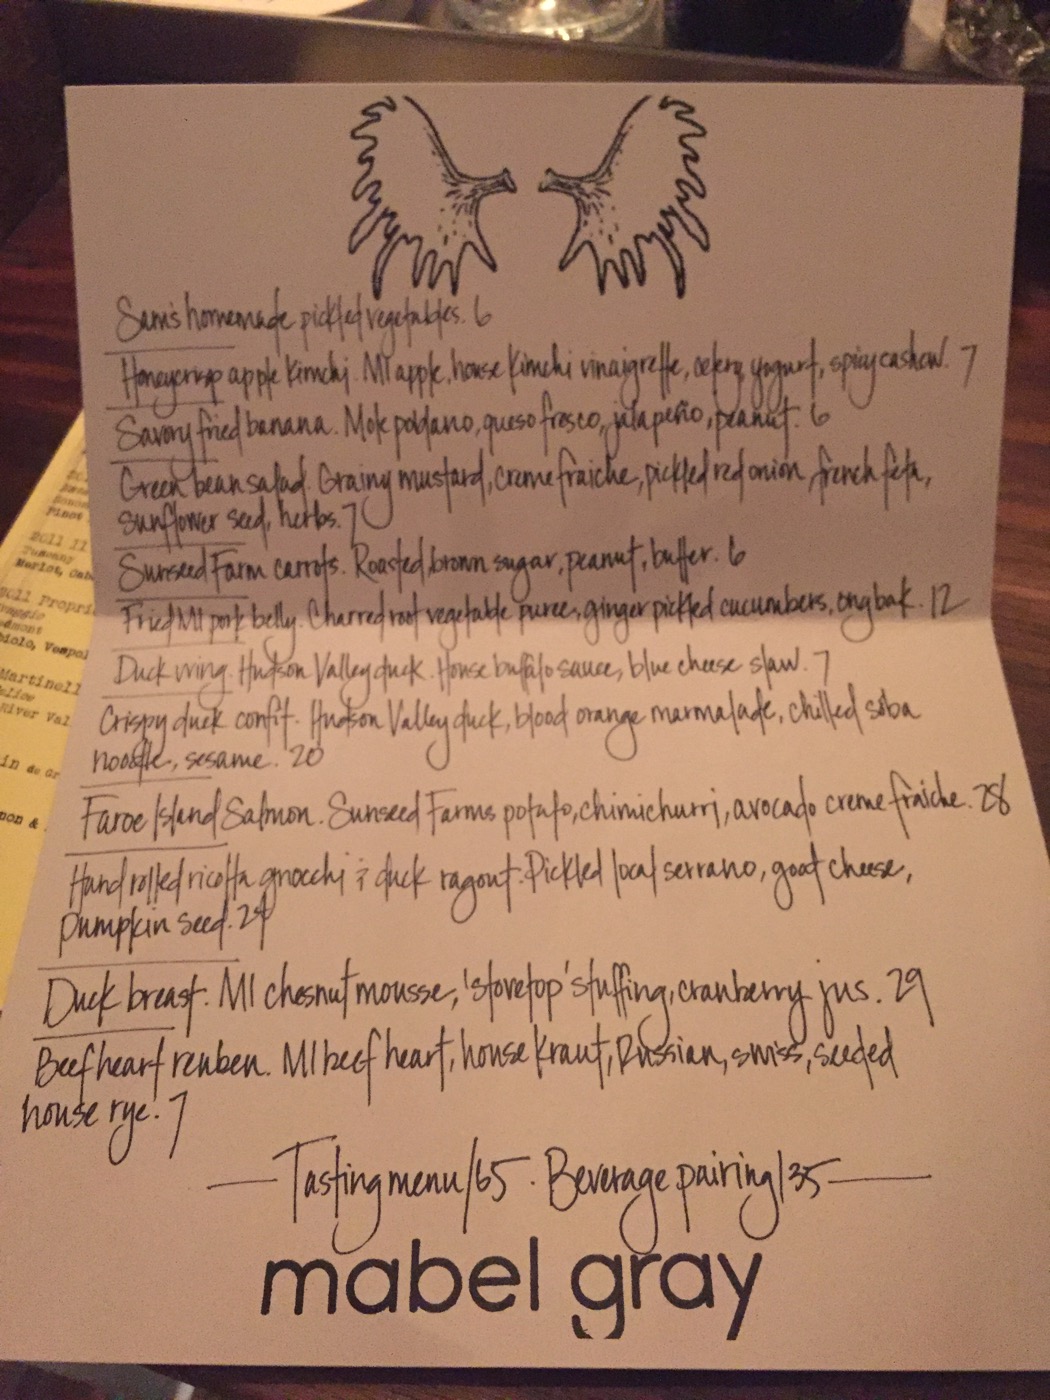 Sam's homemade pickled vegetables. 6
Honeycrisp apple Kimchi. MI apple, house Kimchi vinaigrette, celery, yogurt, spicy cashew. 7
Savory fried banana. Mole poblano, queso fresco, jalapeño, peanut. 6
Green bean salad. Grainy mustard, creme fraiche, pickled red onion, french feta,
sunflower seed, herbs. 7
Sunseed Farm carrots. Roasted, brown sugar, peanut, butter. 6
Fried MI pork belly. Charred root vegetable puree, ginger pickled cucumbers, ong bak. 12
Duck wing. Hudson Valley duck. House buffalo sauce, blue cheese slaw. 7
Crispy duck confit. Hudson Valley duck, blood orange marmalade, chilled soba
noodle, sesame. 20
Faroe Island Salmon. Sunseed Farms potato, chimichurri, avocado creme fraiche. 28
Hand rolled ricotta gnocchi & duck ragout. Pickled local serrano, goat cheese,
pumpkin seed. 24
Duck breast. MI chesnut mousse, 'stovetop' stuffing, cranberry jus. 29
Beef heart reuben. MI beef heart, house kraut, Russian, swiss, seeded
house rye. 7
Tasting menu/65 . Beverage pairing/35
mabel gray
2011 Il
Tuscany
Merlot, Cab
2011 Propri
Martinell
River Val